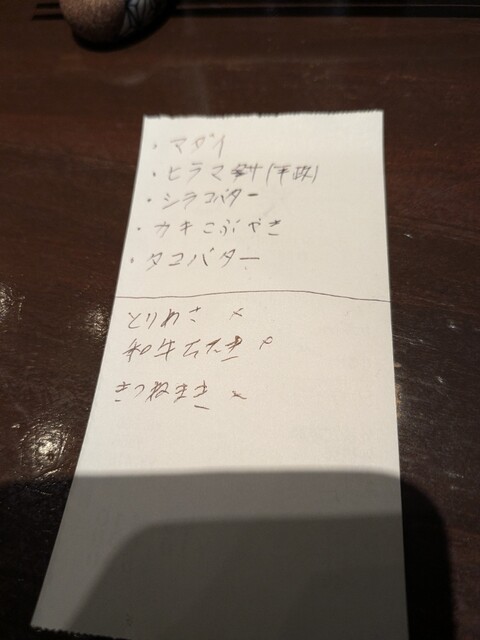 ・マダイ
・ヒラマサ(平政)
・シラコバター
・カキこぶやき
・タコバター
とりわさ ×
和牛たたき ×
きつねまき ×